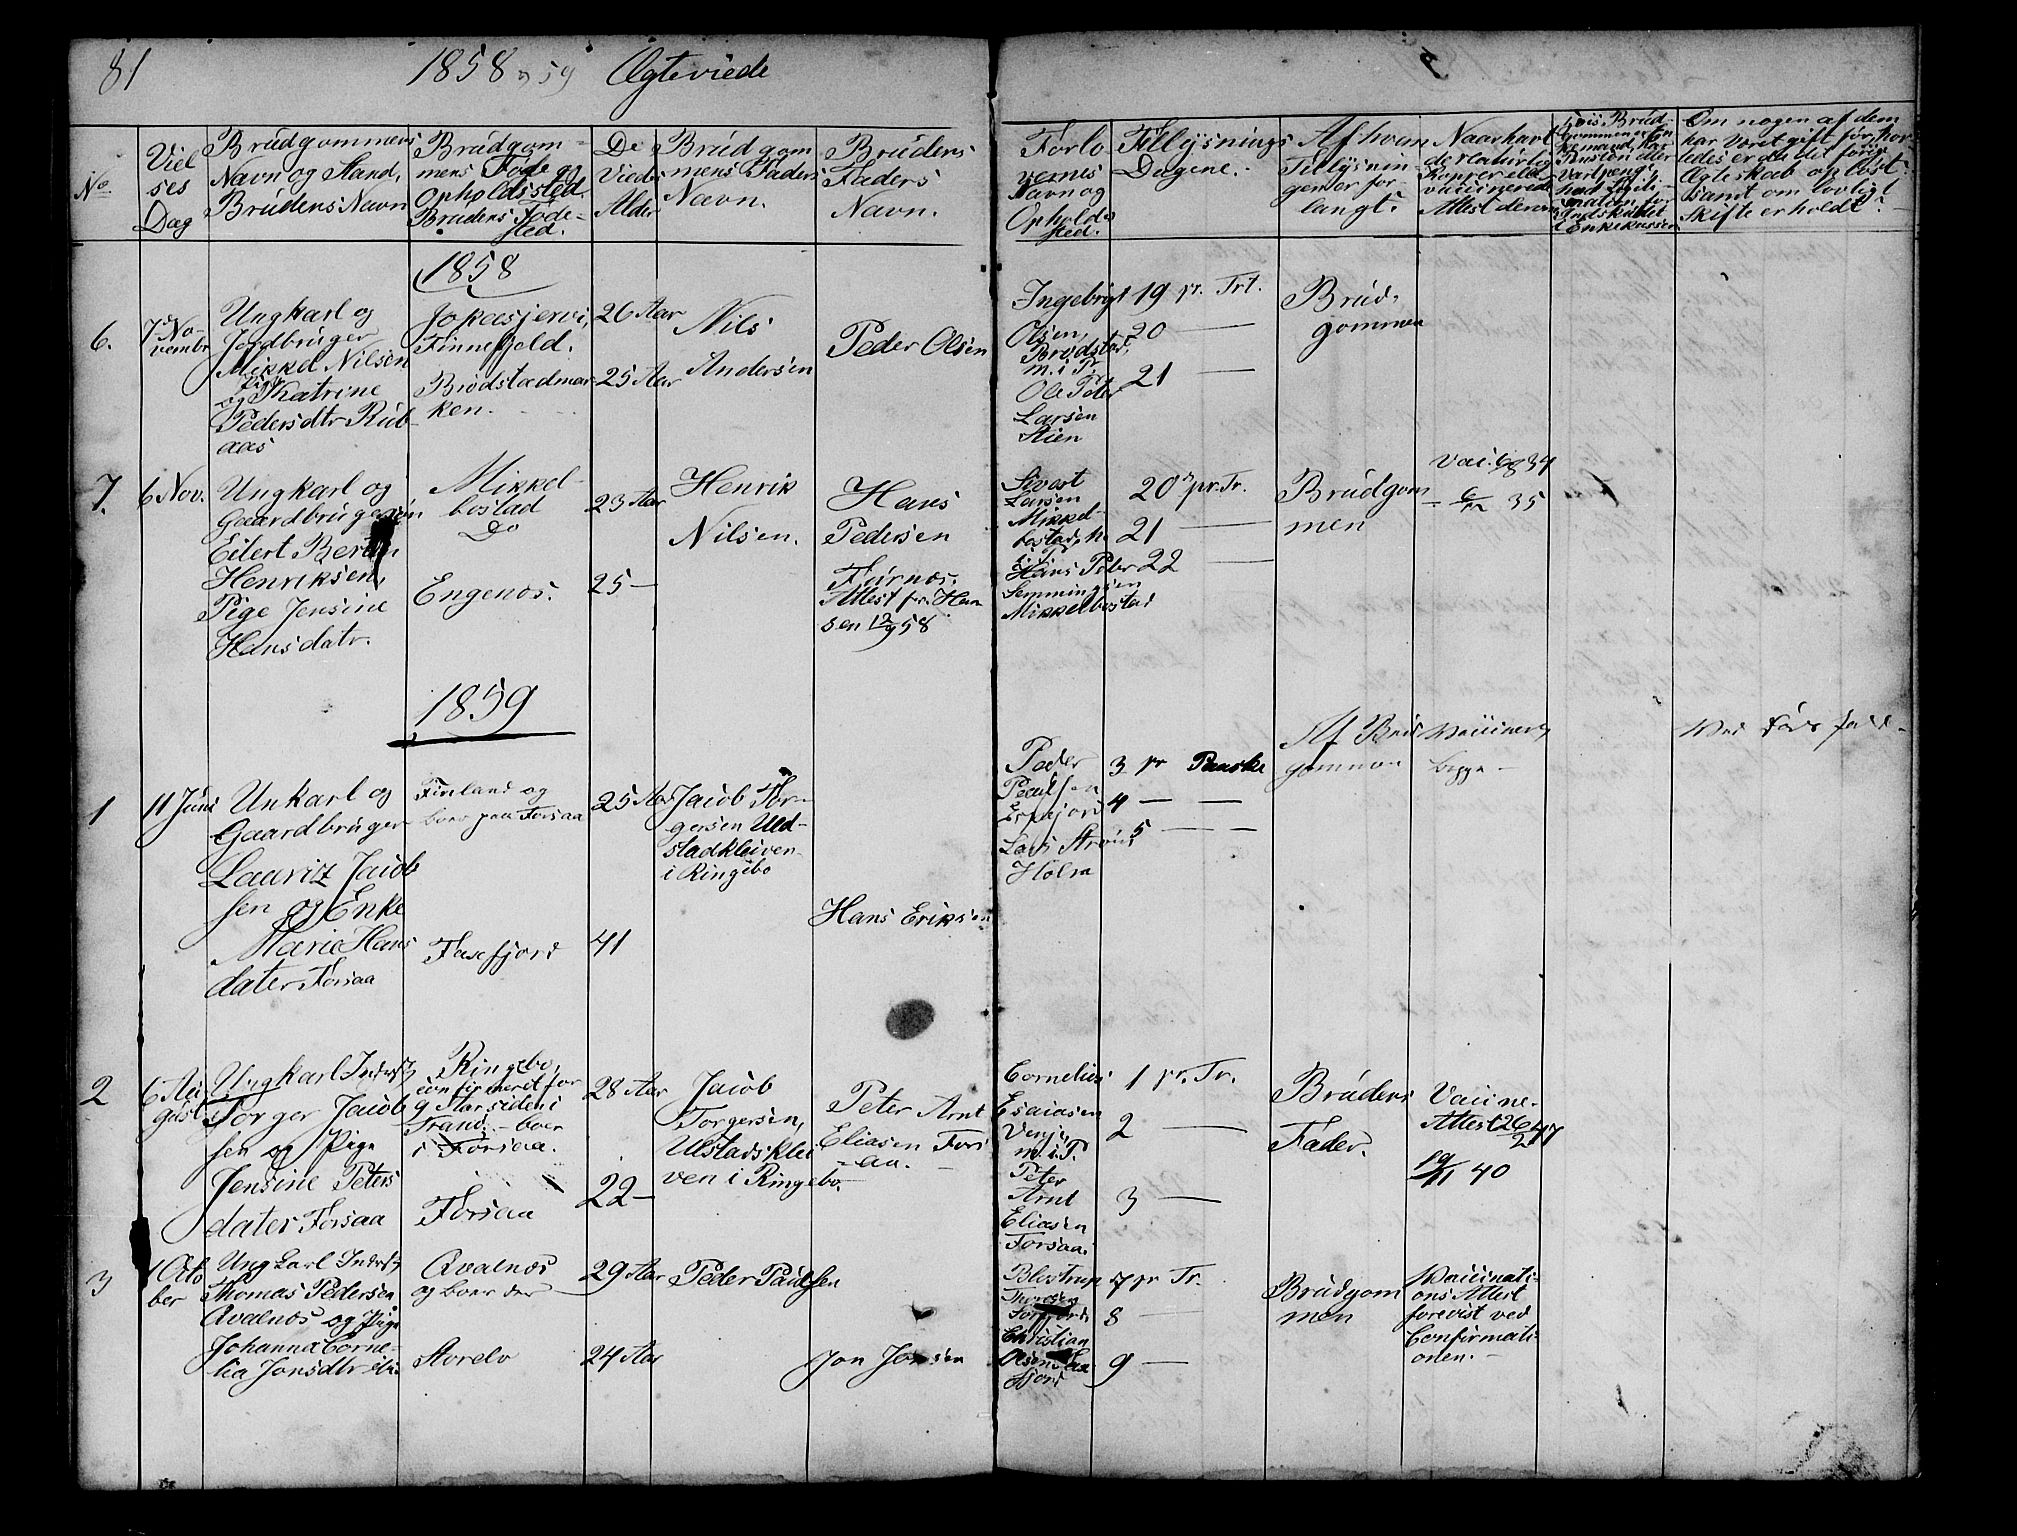 81
1858 & 59 Ægteviede
No
Viel
ses
Dag
Brudgommens
Navn og Stand,
Brudens Navn
Brudgom-
mens Føde og
Opholdssted.
Brudens Føde-
sted.
De
Viedes
Alder
Brudgom
mens Faders
Navn.
Brudens
Faders
Navn.
Forlo
vernes
Navn og
Opholds
sted.
Tillysnings
Dagene.
Af hvem
Tillysnin-
gen er for-
langt.
Naar havt
de naturlige
Kopper eller
vaccinerede
Attest derom
Hvis Brud
gommen er en
har
Pension eller
Om nogen af dem
har været gift før, hor-
ledes er da det forrige
Ægteskab opløst
samt om lovligt
Skifte er holdt?
1858
6.
7de No-
vembr
Ungkarl og
Jordbruger
Mikkel Nilsen
og Pige Katrine
Pedersdtr Rub-
aas
Finnefjeld.
Brødstadmar-
ken.
26 Aar
25 Aar
Nils
Andersen
Peder Olsen
Ingebrigt
Olsen,
Brødstad,
m. i P.
Ole Peter
Larsen
Stien
19 pr. Trt.
20 —
21 —
Brud,
gommen
7.
6 Nov.
Ungkarl og
Gaardbrugersøn
Eilert Bertin
Henriksen,
Pige Jensine
Hansdatr.
Mikkel-
bostad
Do
Engenes.
23 Aar
25 —
Henrik
Nilsen.
Hans
Pedersen
Furnes.
Attest fra Han
sen 12/9 58
Sivert
Larsen
Mikkel-
bostad, m.
i P.
Hans Peter
Semmingsen
Mikkelbostad
20de pr. Tr.
21 —
22 —
Brudgom
men
34
35
1859
1
11 Juni
Unkarl og
Gaardbruger
Lauritz Jacob
sen og Enke
Marie Hans
dater Forsaa
Finland og
boer paa Forsaa
Fasefjord
25 Aar
41
Jacob Tor-
gersen Uld-
stadkleiven
i Ringebo
Hans Eriksen
Peder
Paulsen
Lars
Holm
3 pr Paaske
4 — —
5 — —
Af Brud
gommen
Vaccinert
begge —
2
6 Au
gust
Ungkarl Inderst
Torger Jacob
sen og Pige
Jensine Peters
dater Forsaa
Ringebo,
confirmeret for
9 Aar siden i
Trand. — boer
i Forsaa.
Forsaa
28 Aar
22 —
Jacob
Torgersen,
Ulstadsklei
ven i Ringebo.
Peter Arnt
Eliasen Fors
— aa. —
Cornelius
Esaiasen
Venje,
m. i P.
Peter
Arnt
Eliasen
Forsaa.
1 pr. Tr.
2 —
3 —
Brudens
Fader.
Vaccine.
Attest 26/2 47
19/11 40
3
1 Octo
ber
Ungkarl Inderst
Thomas Pedersen
Avalnes og Pige
Johanna Corne-
lia Jonsdtr
Avalnes
og boer der —
29 Aar
24 Aar
Peder Paulsen
Jon Jonsen
Christian
Olsen
fjord
7 pr Tr.
8 —
9 —
Brudgom
men
Vaccinati-
ons Attest
forevist ved
Confirmati-
onen. —